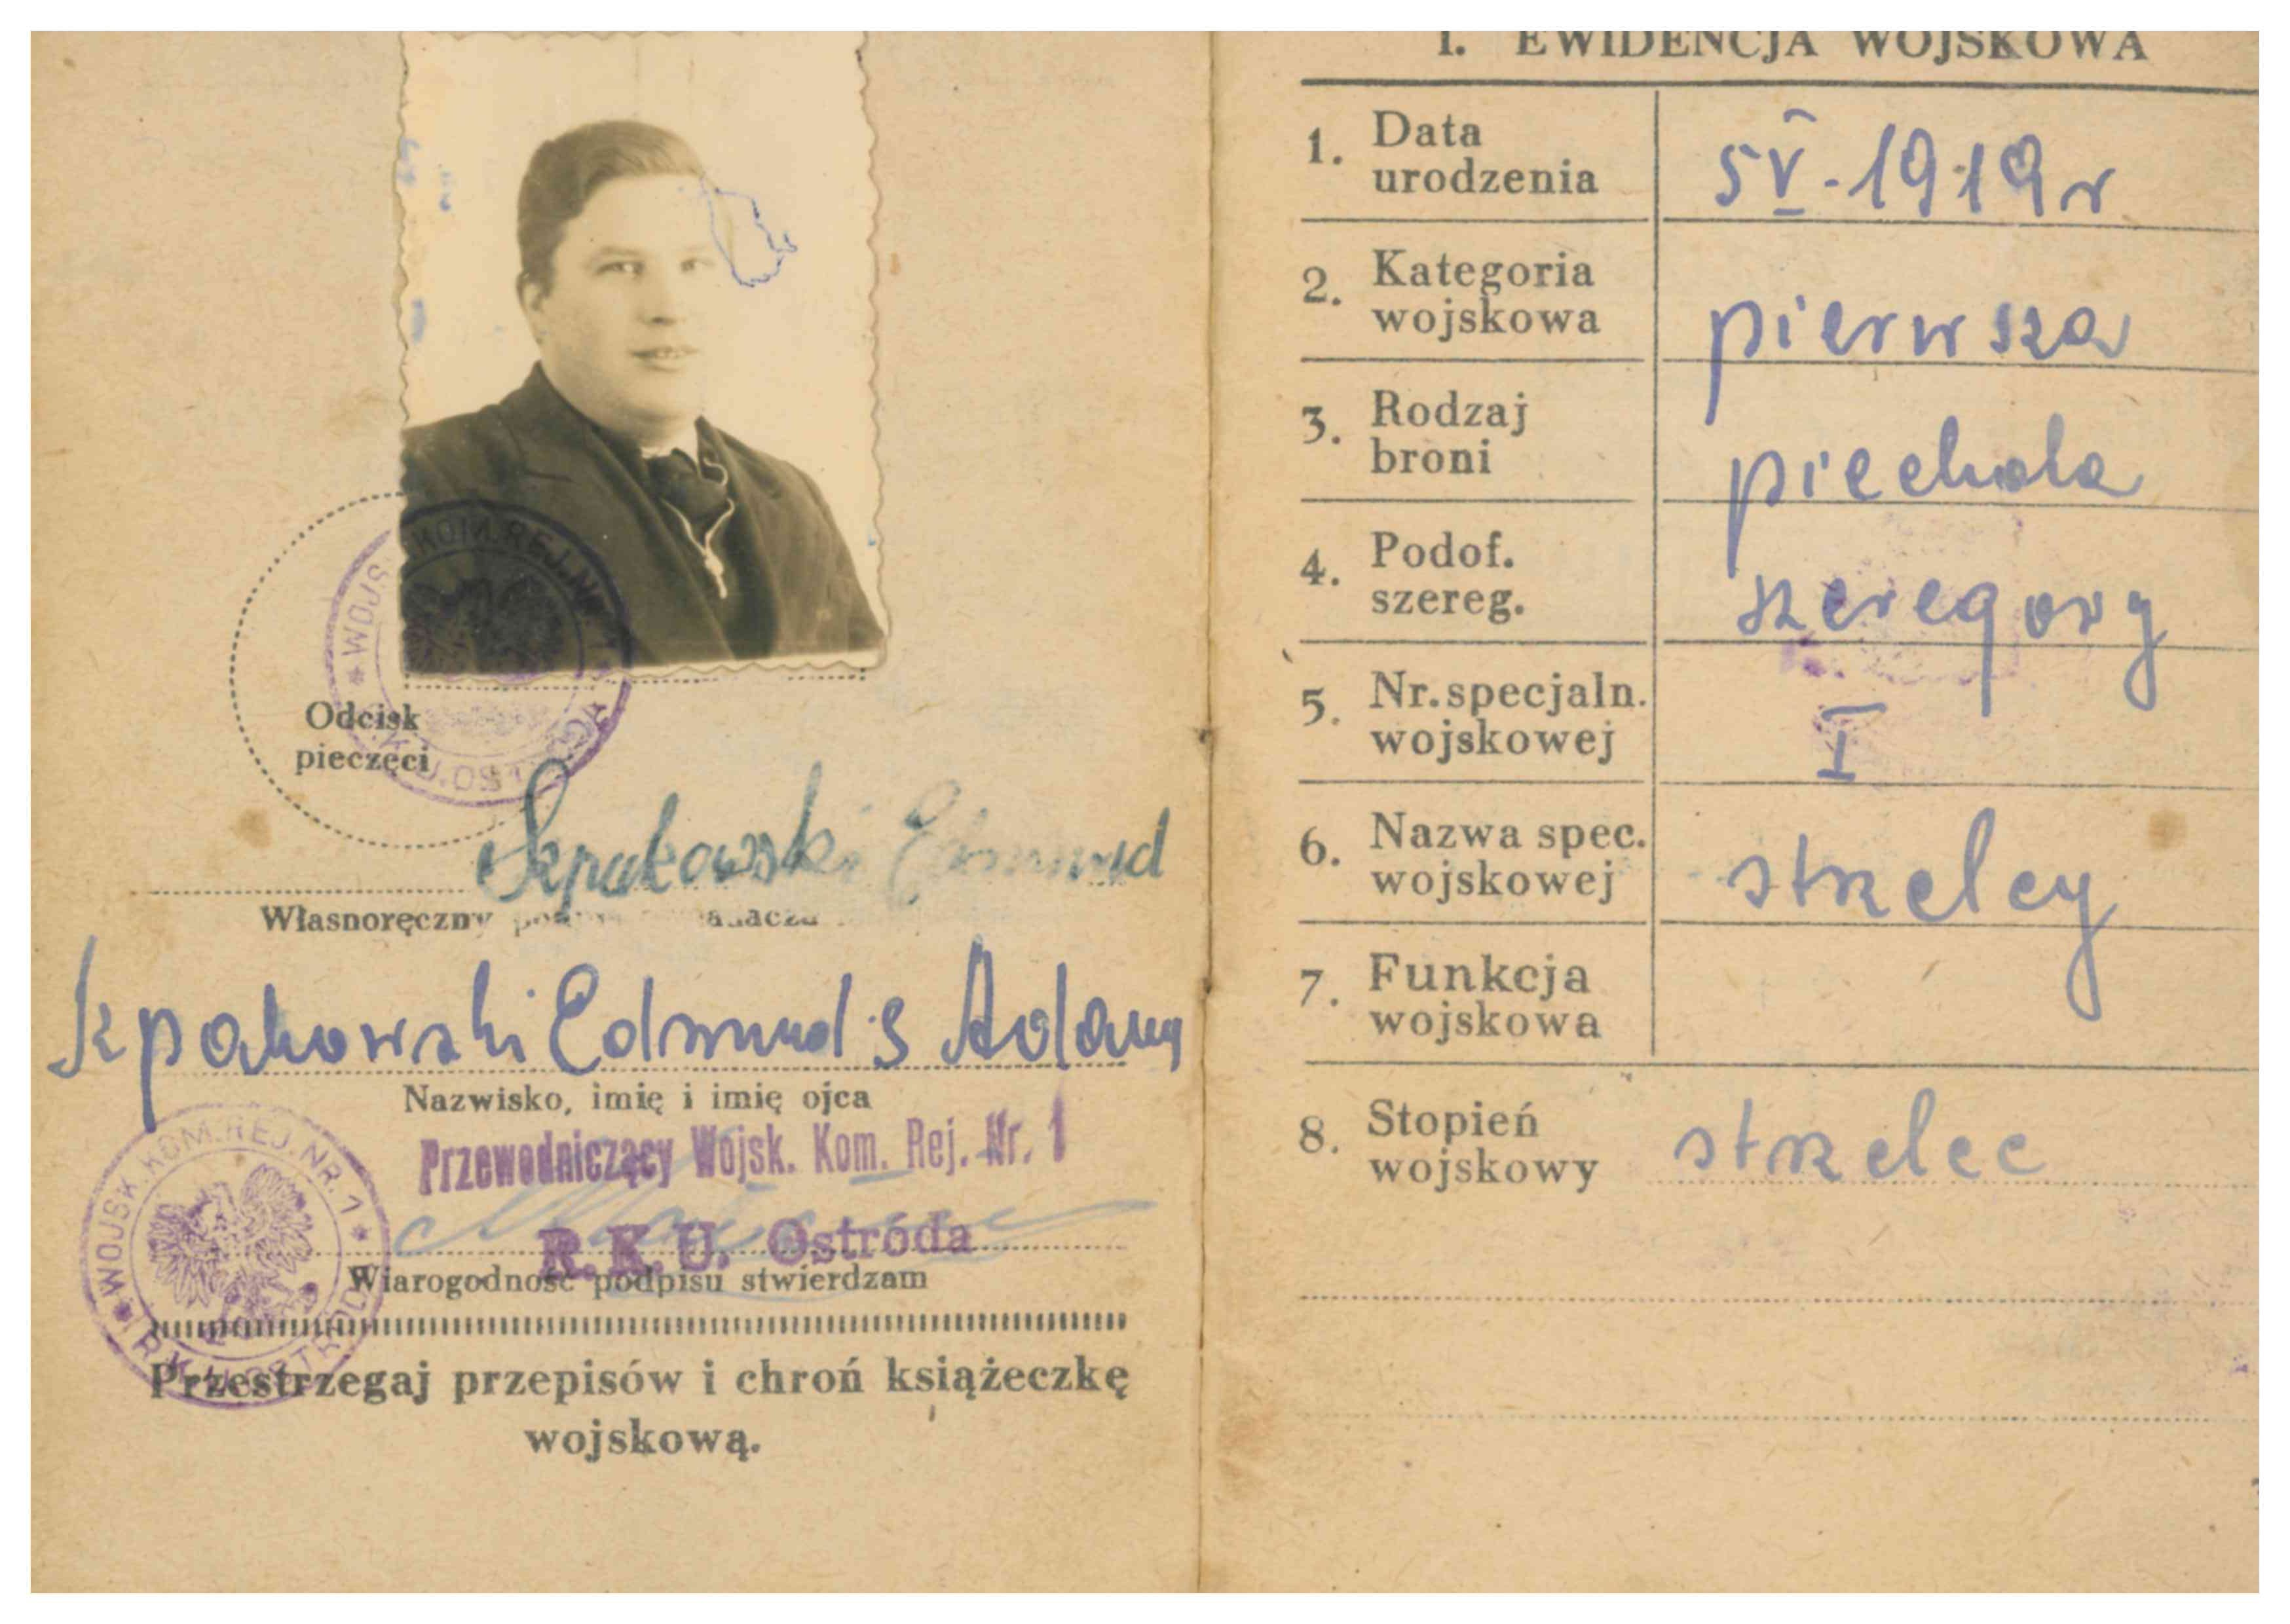 WOJSK. KOM. REJ. NR. 1
Odcisk
pieczęci
Szpakowski Edmund
Własnoręczny
Szpakowski Edmund s Adama
Nazwisko, imię i imię ojca
Przewodniczący Wojsk. Kom. Rej. Nr. 1
R.K.U. Ostróda
Wiarogodność podpisu stwierdzam
WOJSK. KOM. REJ. NR. 1
Przestrzegaj przepisów i chroń książeczkę
wojskową.
I. EWIDENCJA WOJSKOWA
1. Data urodzenia 5 V - 1919 r
2. Kategoria wojskowa pierwsza
3. Rodzaj broni piechota
4. Podof. szereg. szeregowy
5. Nr. specjaln. wojskowej I
6. Nazwa spec. wojskowej strzelcy
7. Funkcja wojskowa
8. Stopień wojskowy strzelec